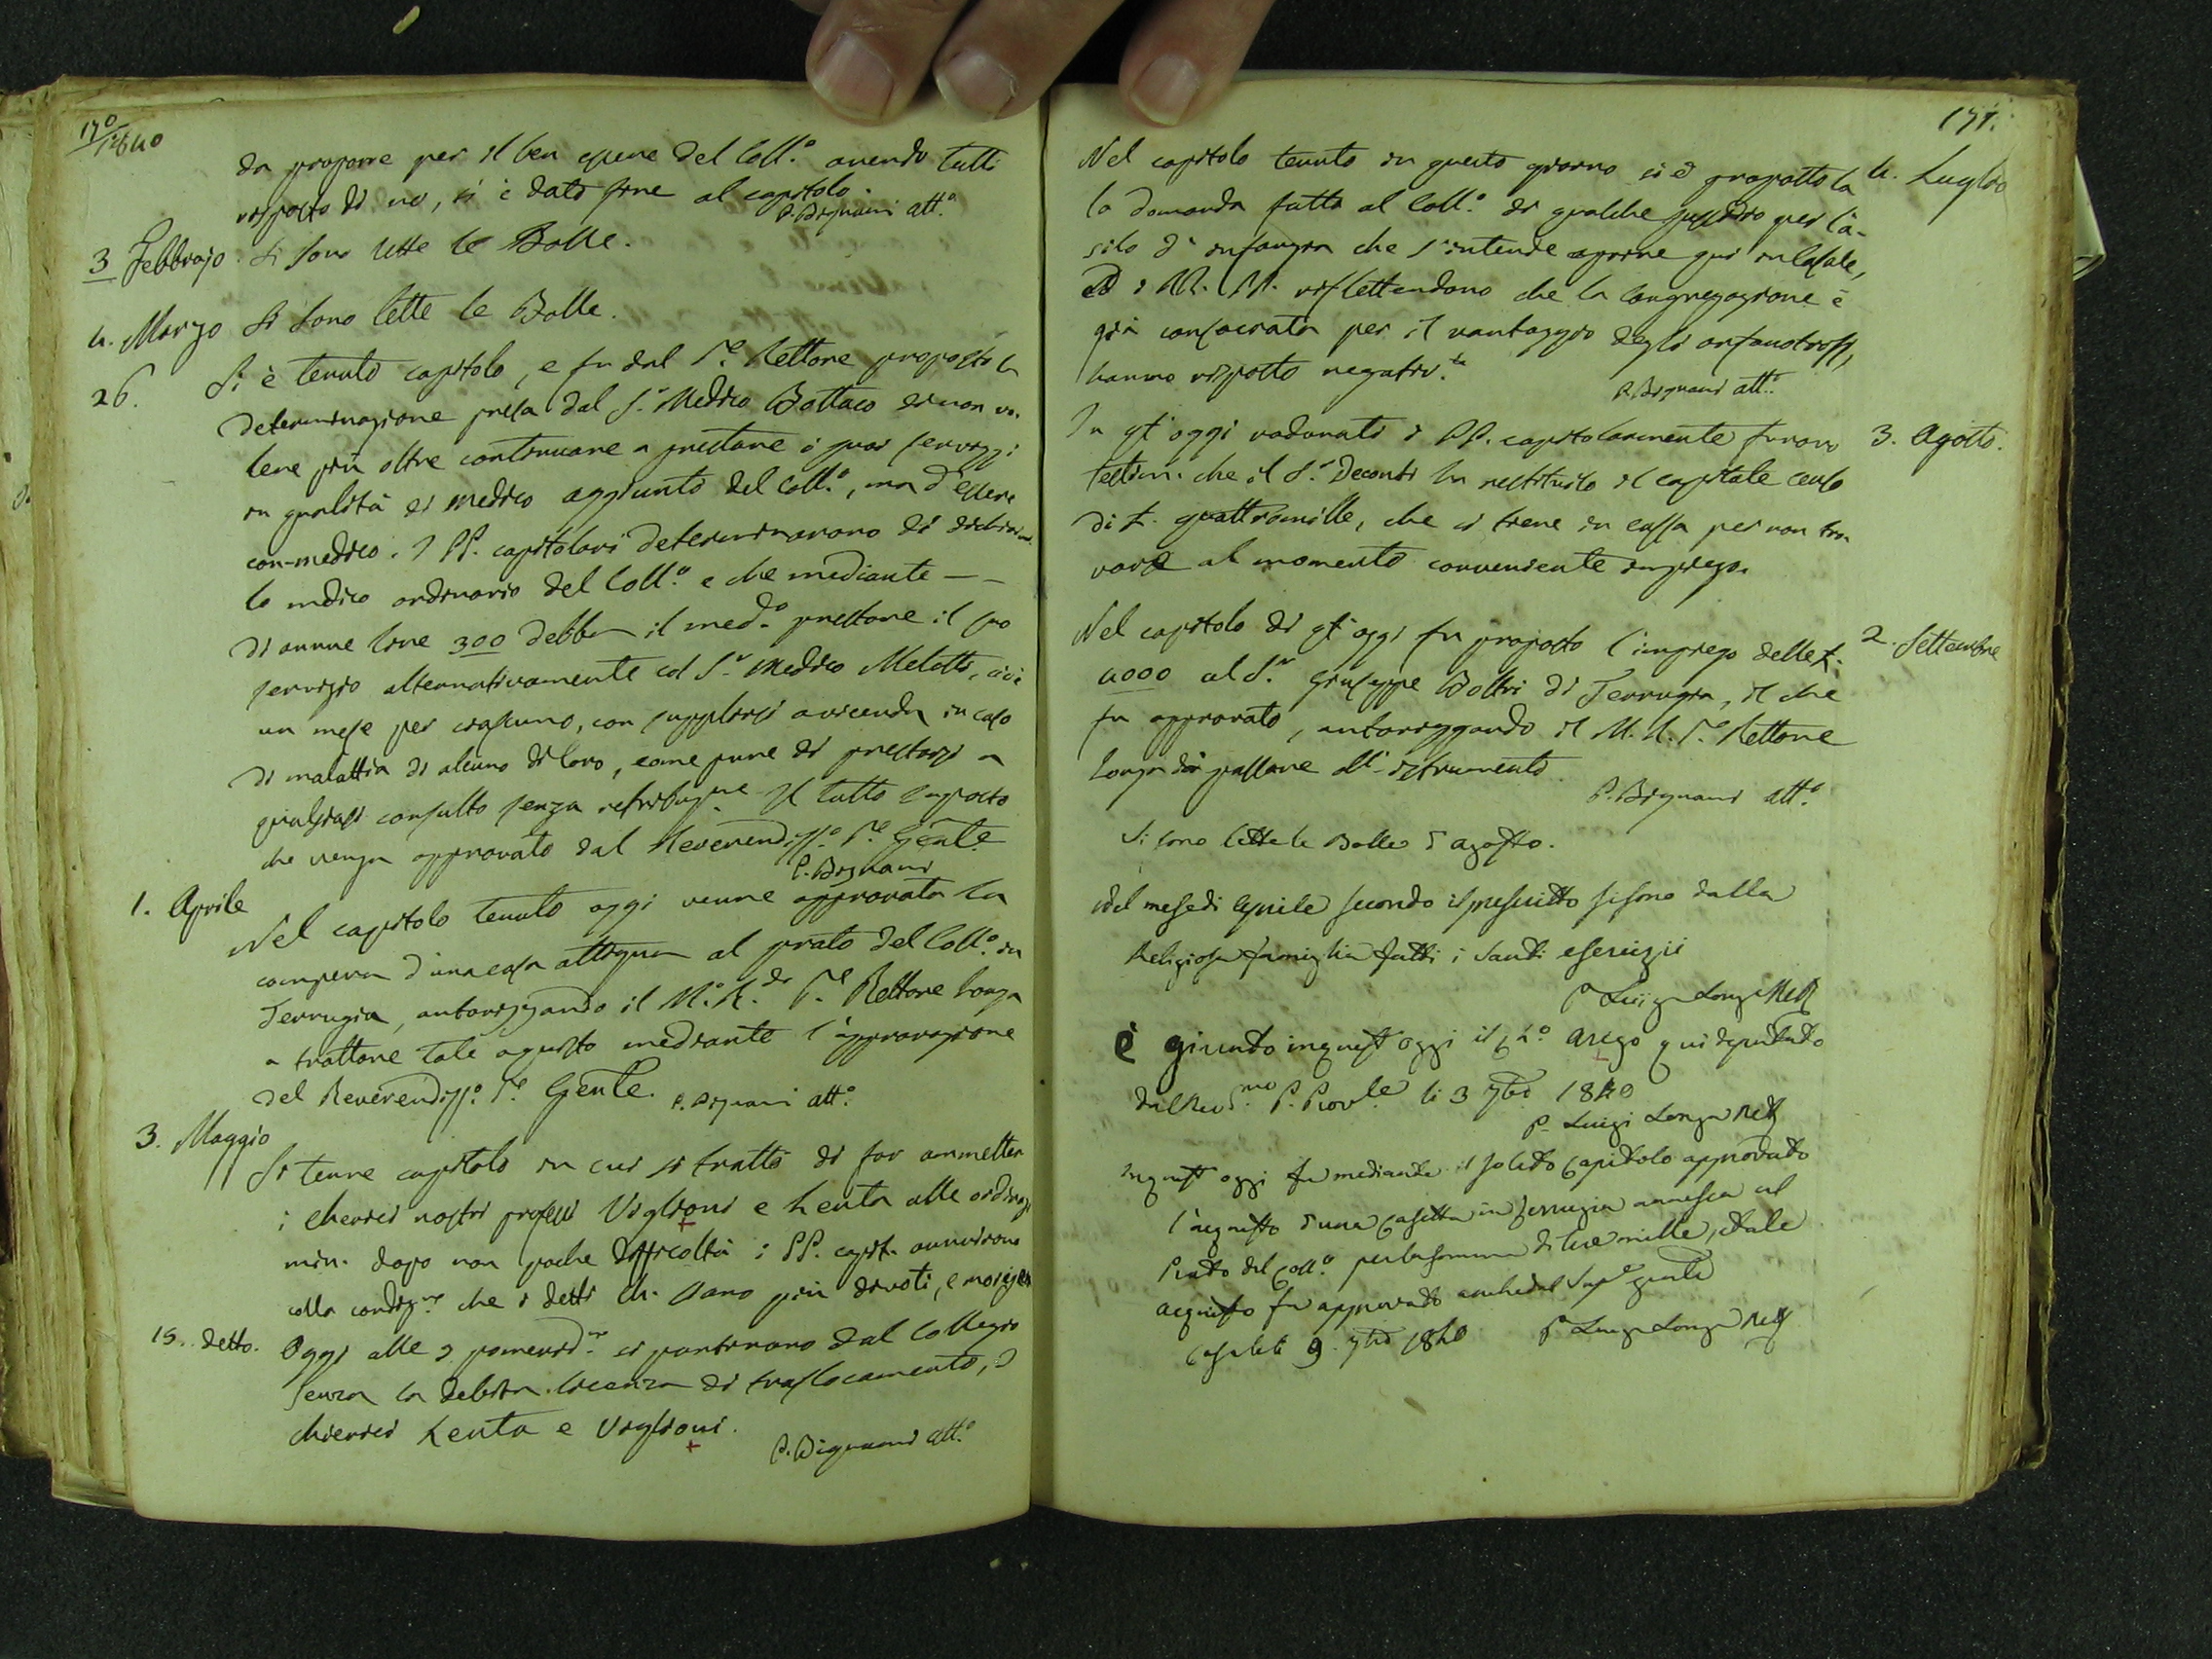 170
1840
da proporre per il ben essere del Coll.º avendo tutti
risposto di no, si è dato fine al capitolo.
P. Bignami att.º
3 Febbrajo. Si sono lette le Bolle.
4. Marzo Si sono lette le Bolle.
26. Si è tenuto capitolo, e fu dal P.e Rettore proposto la
determinazione presa dal S.r Medico Bottaco di non vo-
lere più oltre continuare a prestare i suoi servizzi
in qualità di medico aggiunto del Coll.º, ma d'essere
con-medico. I PP. capitolari determinarono di dichiarar-
lo medico ordinario del Coll.º e che mediante — —
di annue lire 300 debba il med.º prestare il suo
servizio alternativamente col S.r Medico Melotti, cioè
un mese per ciascuno, con supplirsi a vicenda in caso
di malattia di alcuno di loro, come pure di prestarsi a
qualsiasi consulto senza retribuz.ne Il tutto supposto
che venga approvato dal Reverendiss.º P.e Gen.le
P. Bignami
1. Aprile Nel capitolo tenuto oggi venne approvata la
compera d'una casa attigua al prato del Coll.º in
Terrugia, autorizzando il M.º R.do P.e Rettore Longa
a trattare tale aquisto mediante l'approvazione
del Reverendiss.º P.e Gen.le. P. Bignami att.º
3. Maggio
Si tenne capitolo in cui si trattò di far ammetter
i cherici nostri professi Viglioni e Lenta alle ordinaz.
min. dopo non poche difficoltà i PP. capit. annuirono
colla condiz.ne che i detti Ch. siano più divoti, e morigerati
15. detto. Oggi alle 2 pomerid.ne si partirono dal Collegio
senza la debita licenza di traslocamento, i
chierici Lenta e Viglioni.
P. Bignami att.º
171.
Nel capitolo tenuto in questo giorno si è proposto la 4. Luglio
la domanda fatta al Coll.º di qualche sussidio per l'a-
silo d'infanzia che s'intende aprire qui in Casale,
ed i RR. PP. riflettendono che la Congregazione è
già consacrata per il vantaggio degli orfanotrofj,
hanno risposto negativ.te
P. Bignami att.º
In qt'oggi radunati i PP. capitolarmente furono 3. Agosto.
testim. che il S.r Deconti ha restituito il capitale censo
di £. quattromille, che si tiene in cassa per non tro-
vare al momento conveniente impiego.
Nel capitolo di qt'oggi fu proposto l'impiego delle £. 2. Settembre
4000 al S.r Giuseppe Boltri di Terrugia, il che
fu approvato, autorizzando il M. R. P.e Rettore
Longa di passare all'istrumento.
P. Bignami att.º
Si sono lette le Bolle d'agosto.
Nel mese di Aprile secondo il prescritto si sono dalla
Religiosa famiglia fatti i Santi esercizii
P. Luigi Longa Rett
È giunto in quest'oggi il Ch.º Arigo qui deputato
dal Rev.mo P. Prov.le li 3 7bre 1840
P. Luigi Longa Rett
In quest'oggi fu mediante il solito Capitolo approvato
l'acquisto d'una Casetta in Terrugia annessa al
Prato del Coll.º per la somma di lire mille, e tale
acquisto fu approvato anche dal Sup.e gen.le
Casale li 9. 7bre 1840 P. Luigi Longa Rett